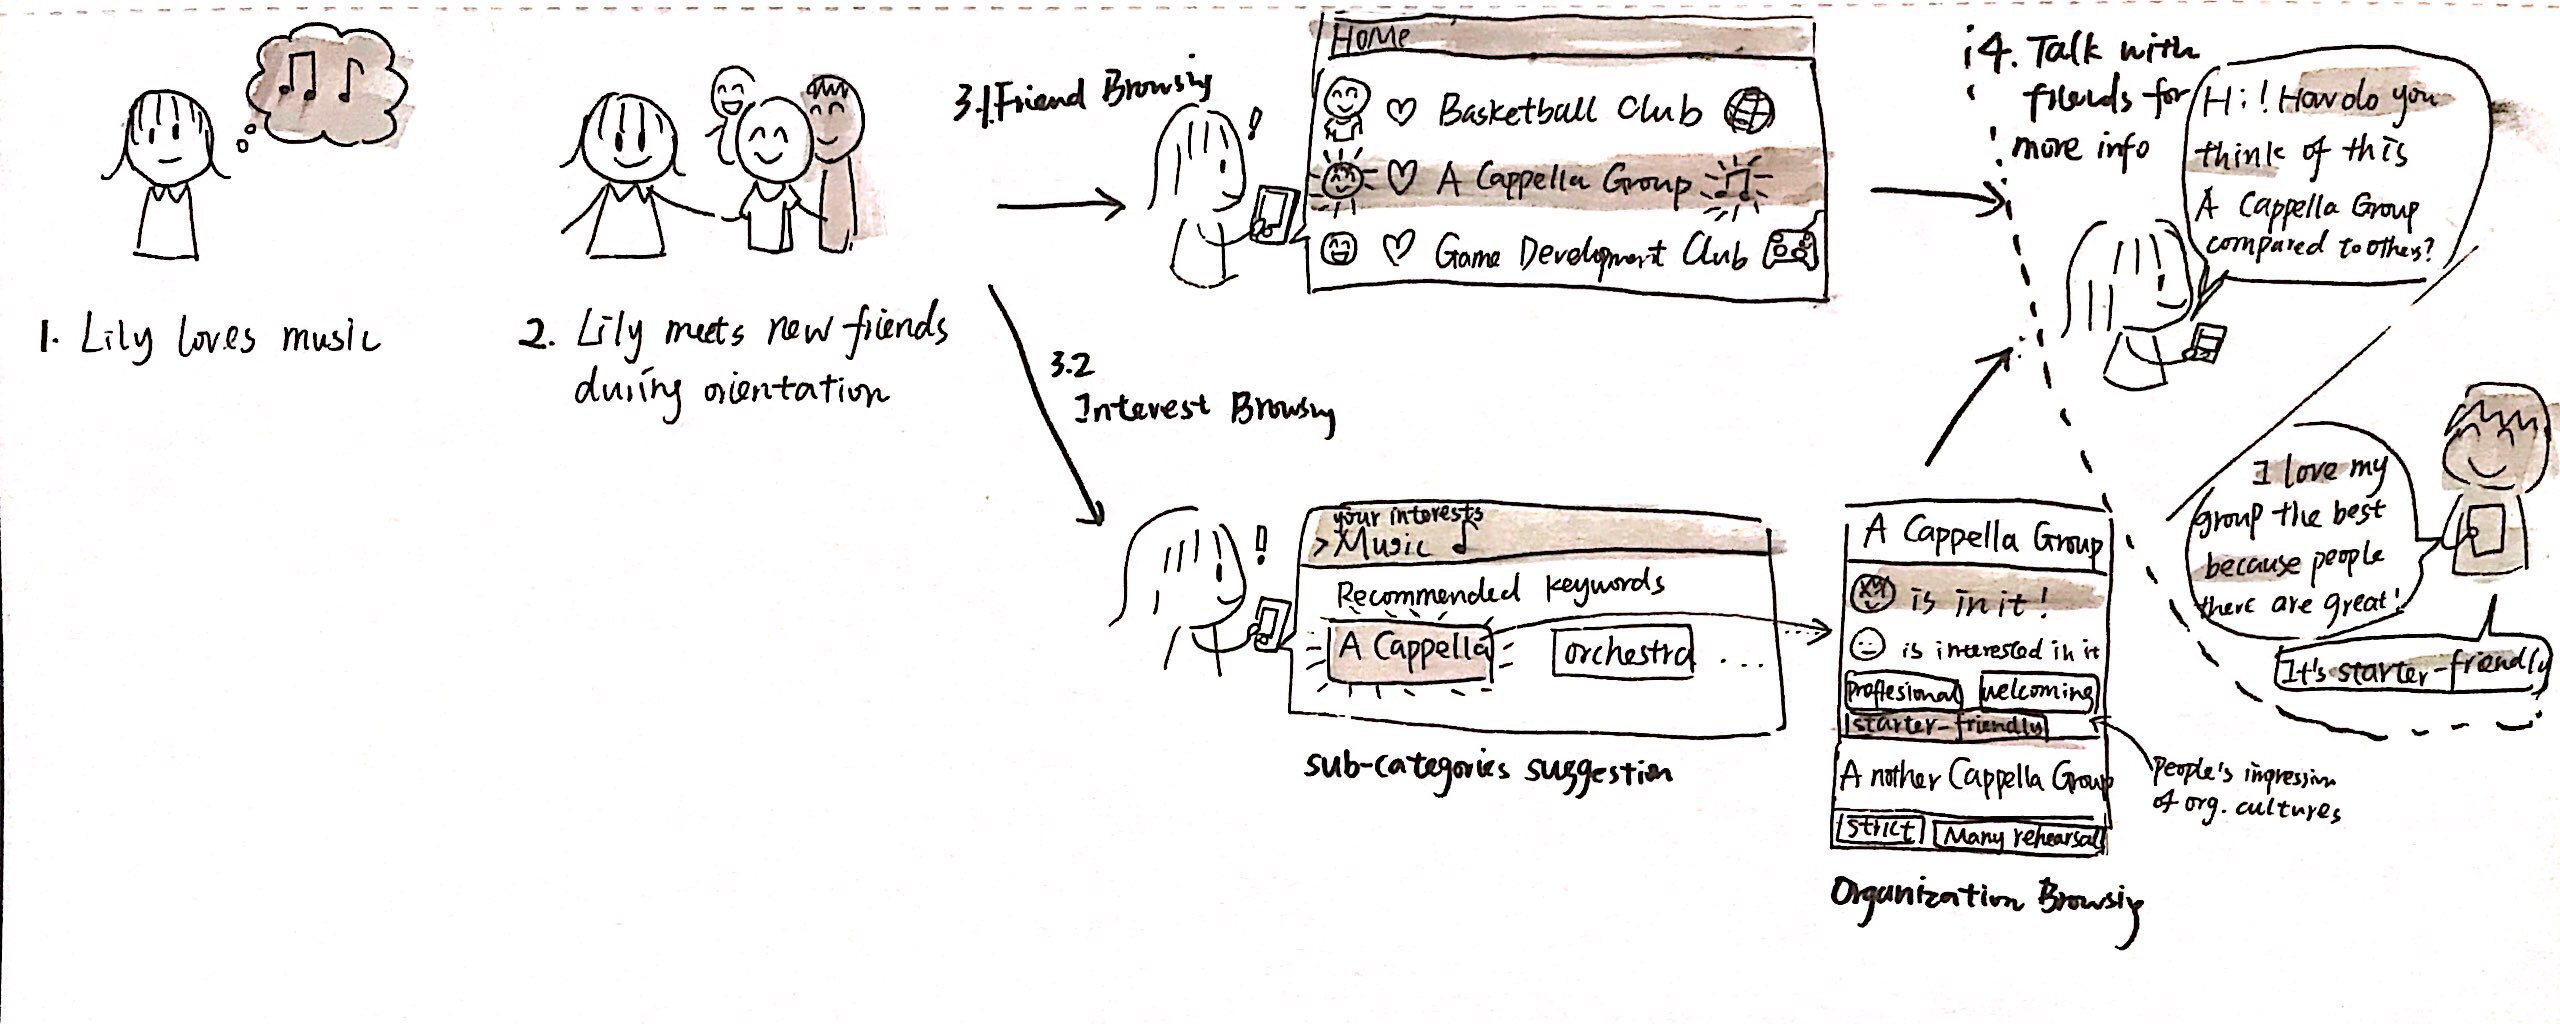 1. Lily loves music
2. Lily meets new friends
during orientation
3.1 Friend Browsing
Home
Basketball Club
A Cappella Group
Game Development Club
3.2
Interest Browsing
your interests
>Music
Recommended keywords
A Cappella
orchestra ...
sub-categories suggestion
A Cappella Group
is in it!
is interested in it
proffesional
welcoming
starter-friendly
Another Cappella Group
strict
Many rehearsal
Organization Browsing
People's impression
of org. cultures
4. Talk with
friends for
more info
Hi! How do you
think of this
A Cappella Group
compared to others?
I love my
group the best
because people
there are great!
It's starter-friendly